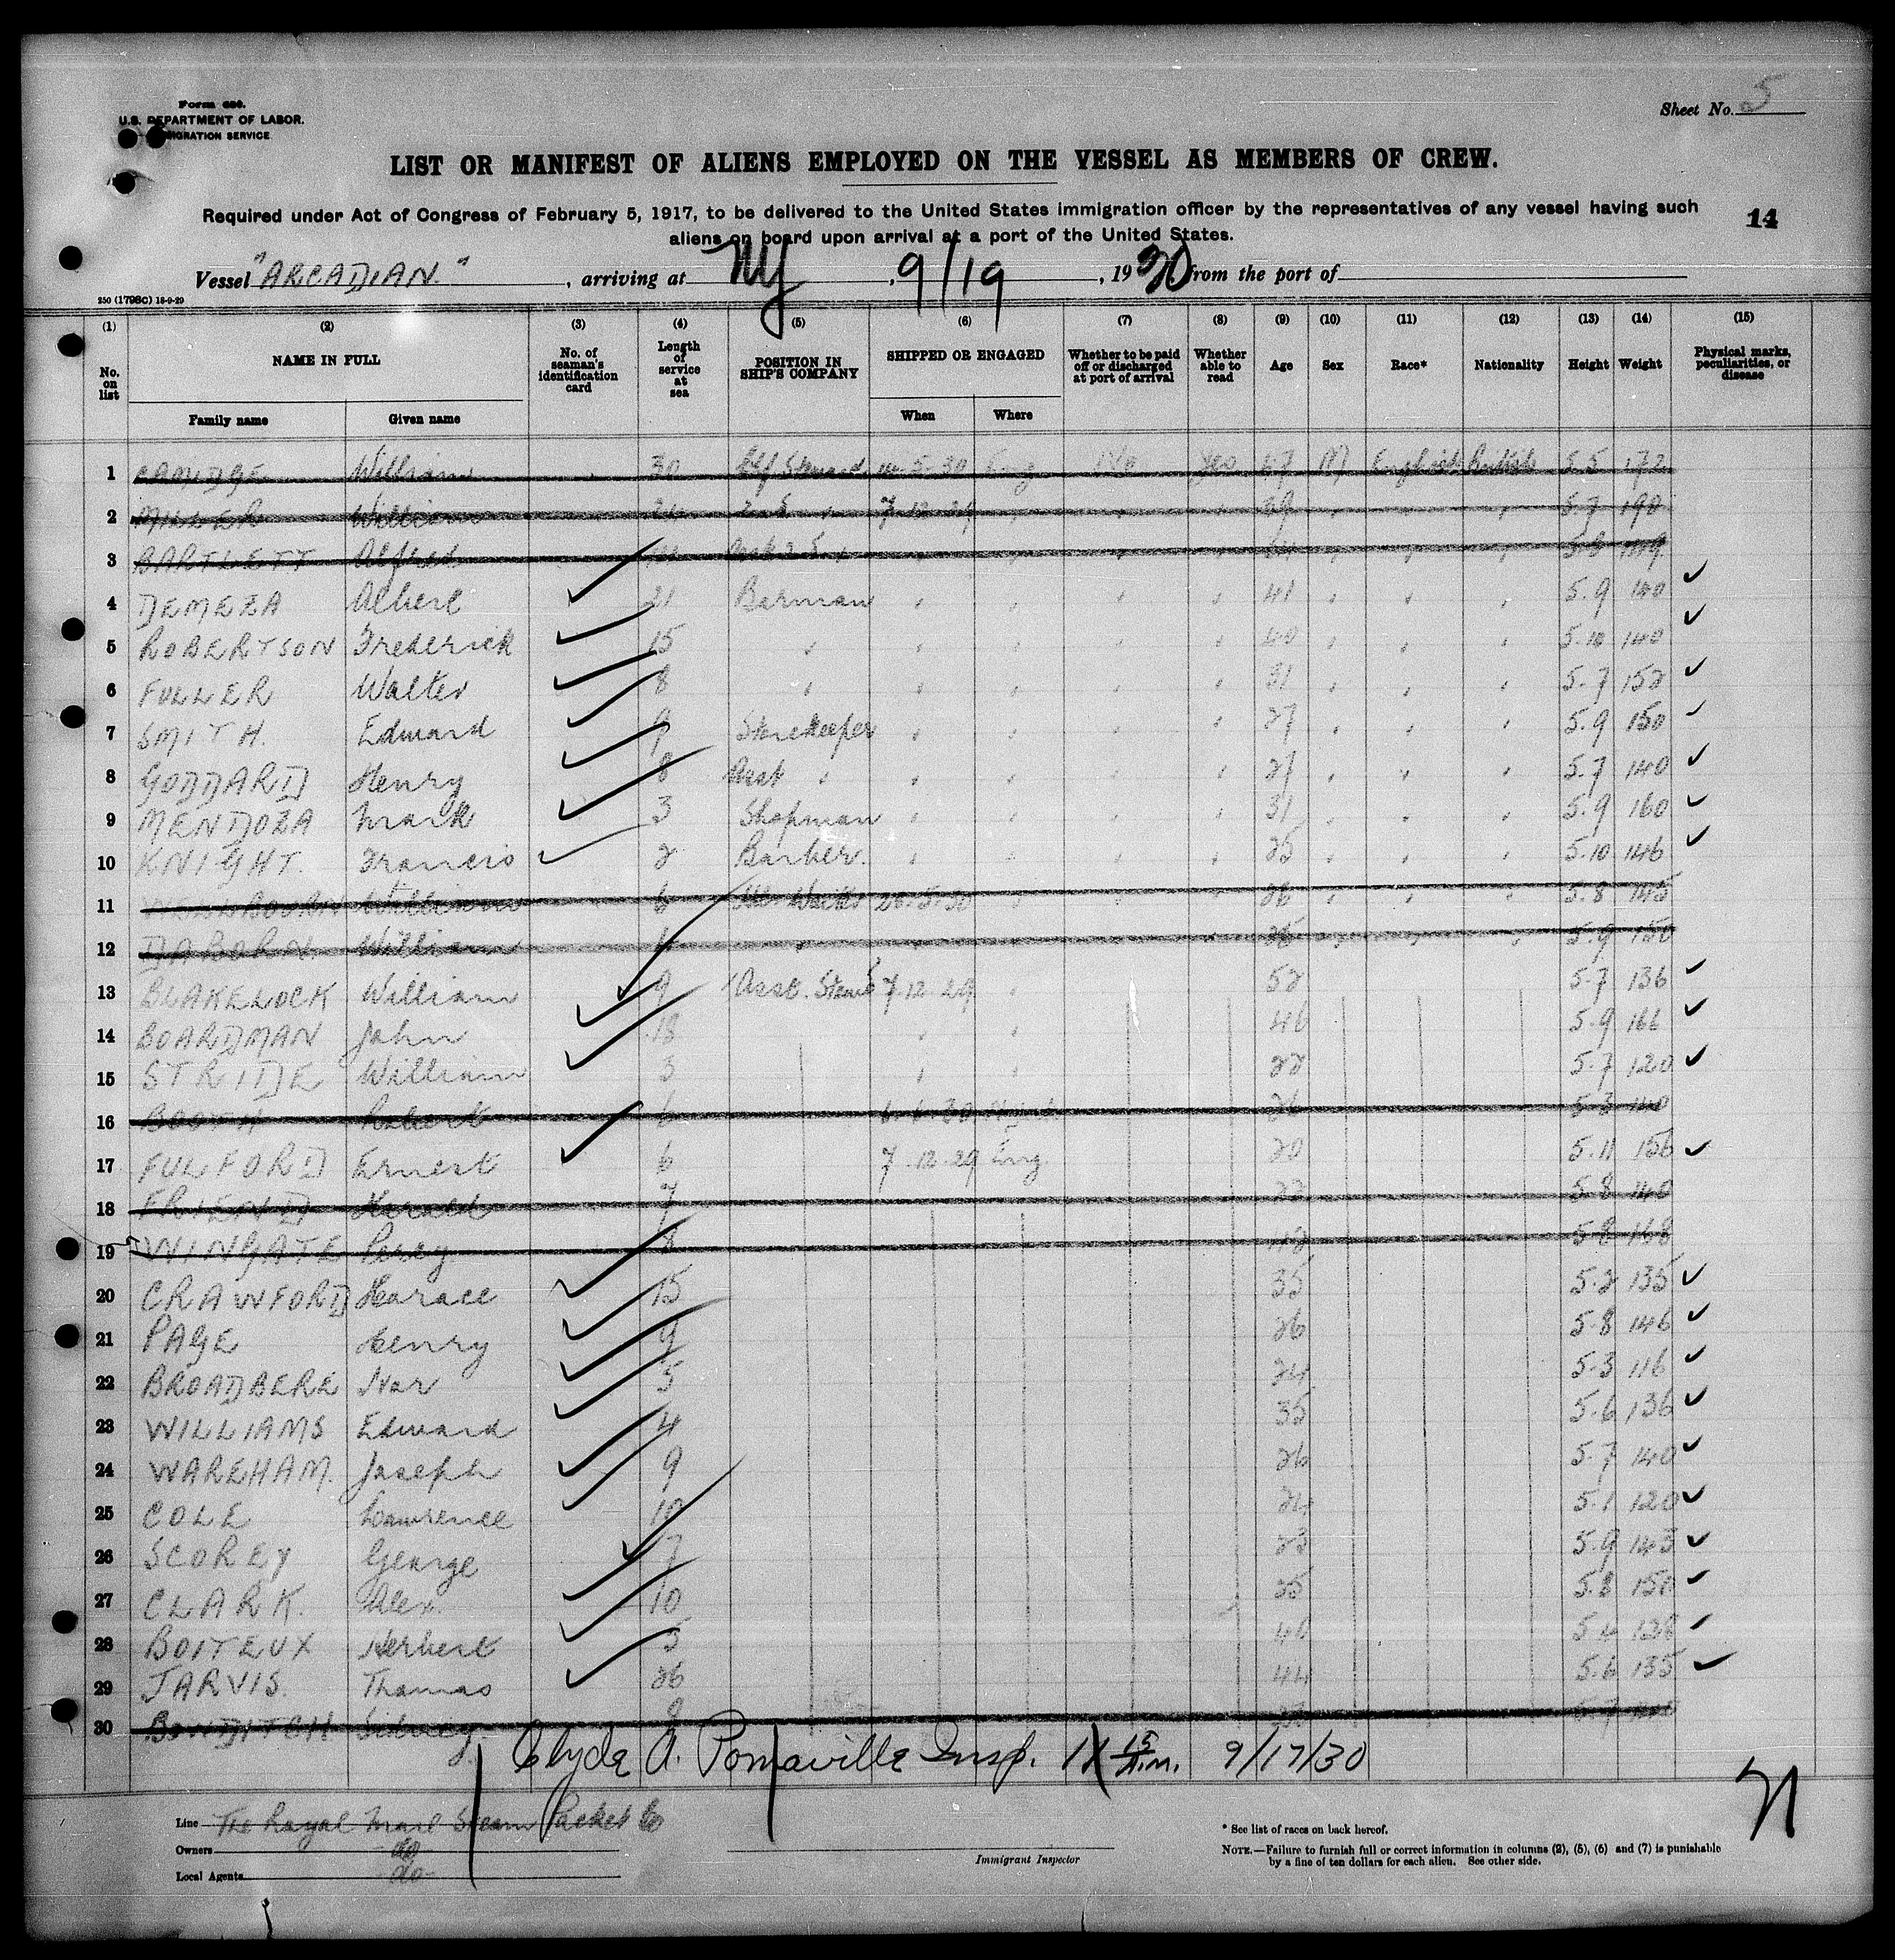 Form 680.
U.S. DEPARTMENT OF LABOR.
IMMIGRATION SERVICE
Sheet No. 5
LIST OR MANIFEST OF ALIENS EMPLOYED ON THE VESSEL AS MEMBERS OF CREW.
Required under Act of Congress of February 5, 1917, to be delivered to the United States immigration officer by the representatives of any vessel having such
aliens on board upon arrival at a port of the United States.
14
Vessel "ARCADIAN." , arriving at NY , 9/19 , 1930 from the port of
250 (1798C) 18-9-29
(1) (2) (3) (4) (5) (6) (7) (8) (9) (10) (11) (12) (13) (14) (15)
No. on list NAME IN FULL Family name Given name No. of seaman's identification card Length of service at sea POSITION IN SHIP'S COMPANY SHIPPED OR ENGAGED When Where Whether to be paid off or discharged at port of arrival Whether able to read Age Sex Race* Nationality Height Weight Physical marks, peculiarities, or disease
1 William 30 Steward 14-5-30 Eng No yes 47 M English British 5.5 172
2 MILLER William 7-12-29 39 5.7 198
3 BARTLETT Alfred 5.8
4 DEMEZA Albert 21 Barman 41 5.9 140
5 ROBERTSON Frederick 15 40 5.10 140
6 FULLER Walter 8 31 5.7 152
7 SMITH. Edward 9 Storekeeper 27 5.9 150
8 GODDARD Henry 8 Asst 27 5.7 140
9 MENDOZA Mark 3 Shopman 31 5.9 160
10 KNIGHT. Francis 2 Barber. 25 5.10 146
11 William 6 26-5-30 26 5.8 145
12 DABORN. William 26 5.9 150
13 BLAKELOCK William 9 Asst. Stewd 7-12-29 52 5.7 136
14 BOARDMAN John 18 46 5.9 166
15 STRIDE William 3 22 5.7 120
16 BOOTH Robert 6 6-6-30 26 5.3 140
17 FULFORD Ernest 6 7-12-29 Eng. 20 5.11 156
18 FRIEND Harold 7 22 5.8 140
19 WINGATE Percy 8 42 5.8 168
20 CRAWFORD Horace 15 35 5.2 135
21 PAGE Henry 9 26 5.8 146
22 BROADBERE Ivor 5 24 5.3 116
23 WILLIAMS Edward 4 35 5.6 136
24 WAREHAM. Joseph 9 26 5.7 140
25 COLE Lawrence 10 24 5.1 120
26 SCOREY George 7 23 5.9 143
27 CLARK. Alex. 10 25 5.8
28 BOITEUX Herbert 5 46 5.4 128
29 JARVIS. Thomas 26 44 5.6 135
30 BOWDITCH Sidney. 8 5.7
Clyde A. Pomaville Insp. 9/17/30
Line The Royal Mail Steam Packet Co
Owners do
Local Agents -do-
Immigrant Inspector
* See list of races on back hereof.
NOTE.—Failure to furnish full or correct information in columns (2), (5), (6) and (7) is punishable
by a fine of ten dollars for each alien. See other side.